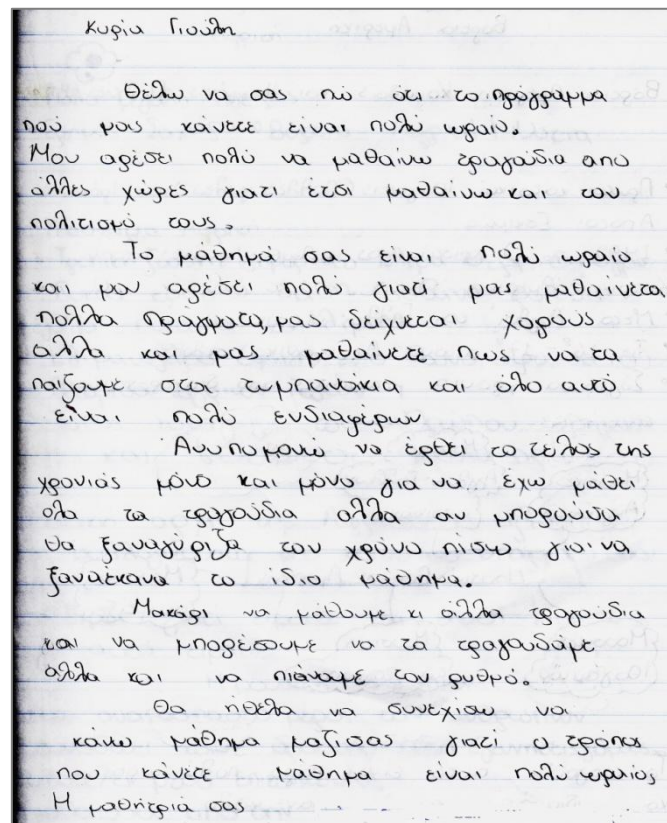 Κυρία Γιούλη
Θέλω να σας πώ ότι το πρόγραμμα
πού μας κάνετε είναι πολύ ωραίο.
Μου αρέσει πολύ να μαθαίνω τραγούδια απο
άλλες χώρες γιατί έτσι μαθαίνω και τον
πολιτισμό τους.
Το μαθημά σας είναι πολύ ωραίο
και μου αρέσει πολύ γιατί μας μαθαίνεται
πολλα πράγματα, μας δείχνεται χορούς
άλλα και μας μαθαίνετε πως να τα
παίζουμε στα τυμπανάκια και όλο αυτό
είναι πολύ ενδιαφέρων
Ανυπομονώ να έρθει το τέλος της
χρονιάς μόνο και μόνο για να έχω μάθει
όλα τα τραγούδια αλλα αν μπορούσα
θα ξαναγύριζα τον χρόνο πίσω για να
ξαναέκανα το ίδιο μάθημα.
Μακάρι να μάθουμε κι άλλα τραγούδια
και να μπορέσουμε να τα τραγουδάμε
άλλα και να πιάναμε τον ρυθμό.
Θα ήθελα να συνεχίσω να
κάνω μάθημα μαζί σας γιατί ο τρόπος
που κάνετε μάθημα είναι πολύ ωραίος
Η μαθήτριά σας